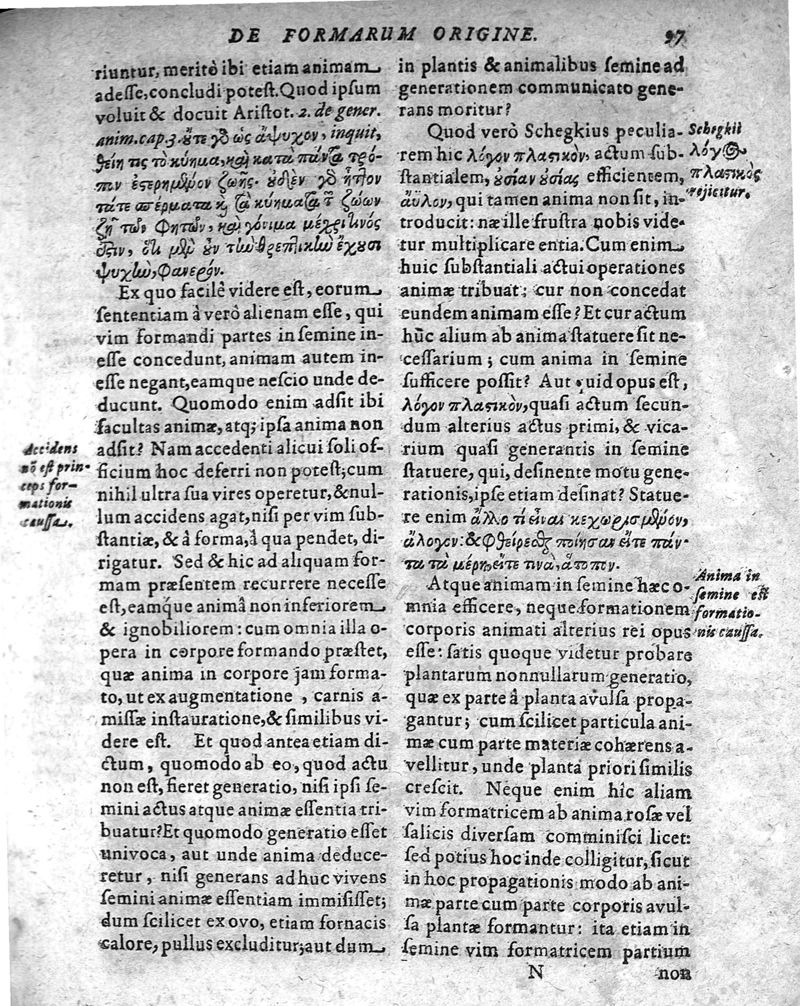 DE FORMARUM ORIGINE. 97
riuntur, meritò ibi etiam animam
adesse, concludi potest. Quod ipsum
voluit & docuit Aristot. 2. de gener.
anim. cap. 3. ὔτε γὸ ὡς ἄψυχον, inquit,
θείη τις τὸ κύημα, καὶ κατὰ πάντα τρό-
πον ἐστερημένον ζωῆς. ὐθὲν γὸ ἧττον
τά τε σπέρματα κ τὰ κυήματα τ ζώων
ζῇ τῶν φητῶν, καὶ γόνιμα μέχρι τινός
ὅτι μὲν ὖν τὼ θρεπτικὼ ἔχουσι
ψυχὼ, φανερόν.
Ex quo facilè videre est, eorum
sententiam à verò alienam esse, qui
vim formandi partes in semine in-
esse concedunt, animam autem in-
esse negant, eamque nescio unde de-
ducunt. Quomodo enim adsit ibi
facultas animæ, atq; ipsa anima non
adsit? Nam accedenti alicui soli of-
ficium hoc deferri non potest; cum
nihil ultra sua vires operetur, & nul-
lum accidens agat, nisi per vim sub-
stantiæ, & â forma, â qua pendet, di-
rigatur. Sed & hic ad aliquam for-
mam præsentem recurrere necesse
est, eamq́ue animâ non inferiorem
& ignobiliorem: cum omnia illa o-
pera in corpore formando præstet,
quæ anima in corpore jam forma-
to, ut ex augmentatione, carnis a-
missæ instauratione, & similibus vi-
dere est. Et quod antea etiam di-
ctum, quomodo ab eo, quod actu
non est, fieret generatio, nisi ipsi se-
mini actus atque animæ essentia tri-
buatur? Et quomodo generatio esset
univoca, aut unde anima deduce-
retur, nisi generans adhuc vivens
semini animæ essentiam immisisset;
dum scilicet ex ovo, etiam fornacis
calore, pullus excluditur; aut dum
Accidens
nō est prin-
ceps for-
mationis
caussa.
in plantis & animalibus semine ad
generationem communicato gene-
rans moritur?
Quod verò Schegkius peculia-
rem hic λόγον πλαστικὸν, actum sub-
stantialem, ὐσίαν ὐσίας efficientem,
ἄϋλον, qui tamen anima non sit, in-
troducit: næ ille frustra nobis vide-
tur multiplicare entia. Cum enim
huic substantiali actui operationes
animæ tribuat; cur non concedat
eundem animam esse? Et cur actum
hûc alium ab anima statuere sit ne-
cessarium; cum anima in semine
sufficere possit? Aut quid opus est,
λόγον πλαστικὸν, quasi actum secun-
dum alterius actus primi, & vica-
rium quasi generantis in semine
statuere, qui, desinente motu gene-
rationis, ipse etiam desinat? Statue-
re enim ἄλλο τί εἶναι κεχωρισμένον,
ἄλογον: & φθείρεσθ ποίησαν εἴτε πάν-
τα τὰ μέρη, εἴτε τινὰ, ἄτοπον.
Atque animam in semine hæc o-
mnia efficere, neque formationem
corporis animati alterius rei opus
esse: satis quoque videtur probare
plantarum nonnullarum generatio,
quæ ex parte â planta avulsa propa-
gantur; cum scilicet particula ani-
mæ cum parte materiæ cohærens a-
vellitur, unde planta priori similis
crescit. Neque enim hîc aliam
vim formatricem ab anima rosæ vel
salicis diversam comminisci licet:
sed potius hoc inde colligitur, sicut
in hoc propagationis modo ab ani-
mæ parte cum parte corporis avul-
sa plantæ formantur: ita etiam in
semine vim formatricem partium
N non
Schegkii
λόγ
πλαστικὸς
rejicitur.
Anima in
semine est
formatio-
nis caussa.